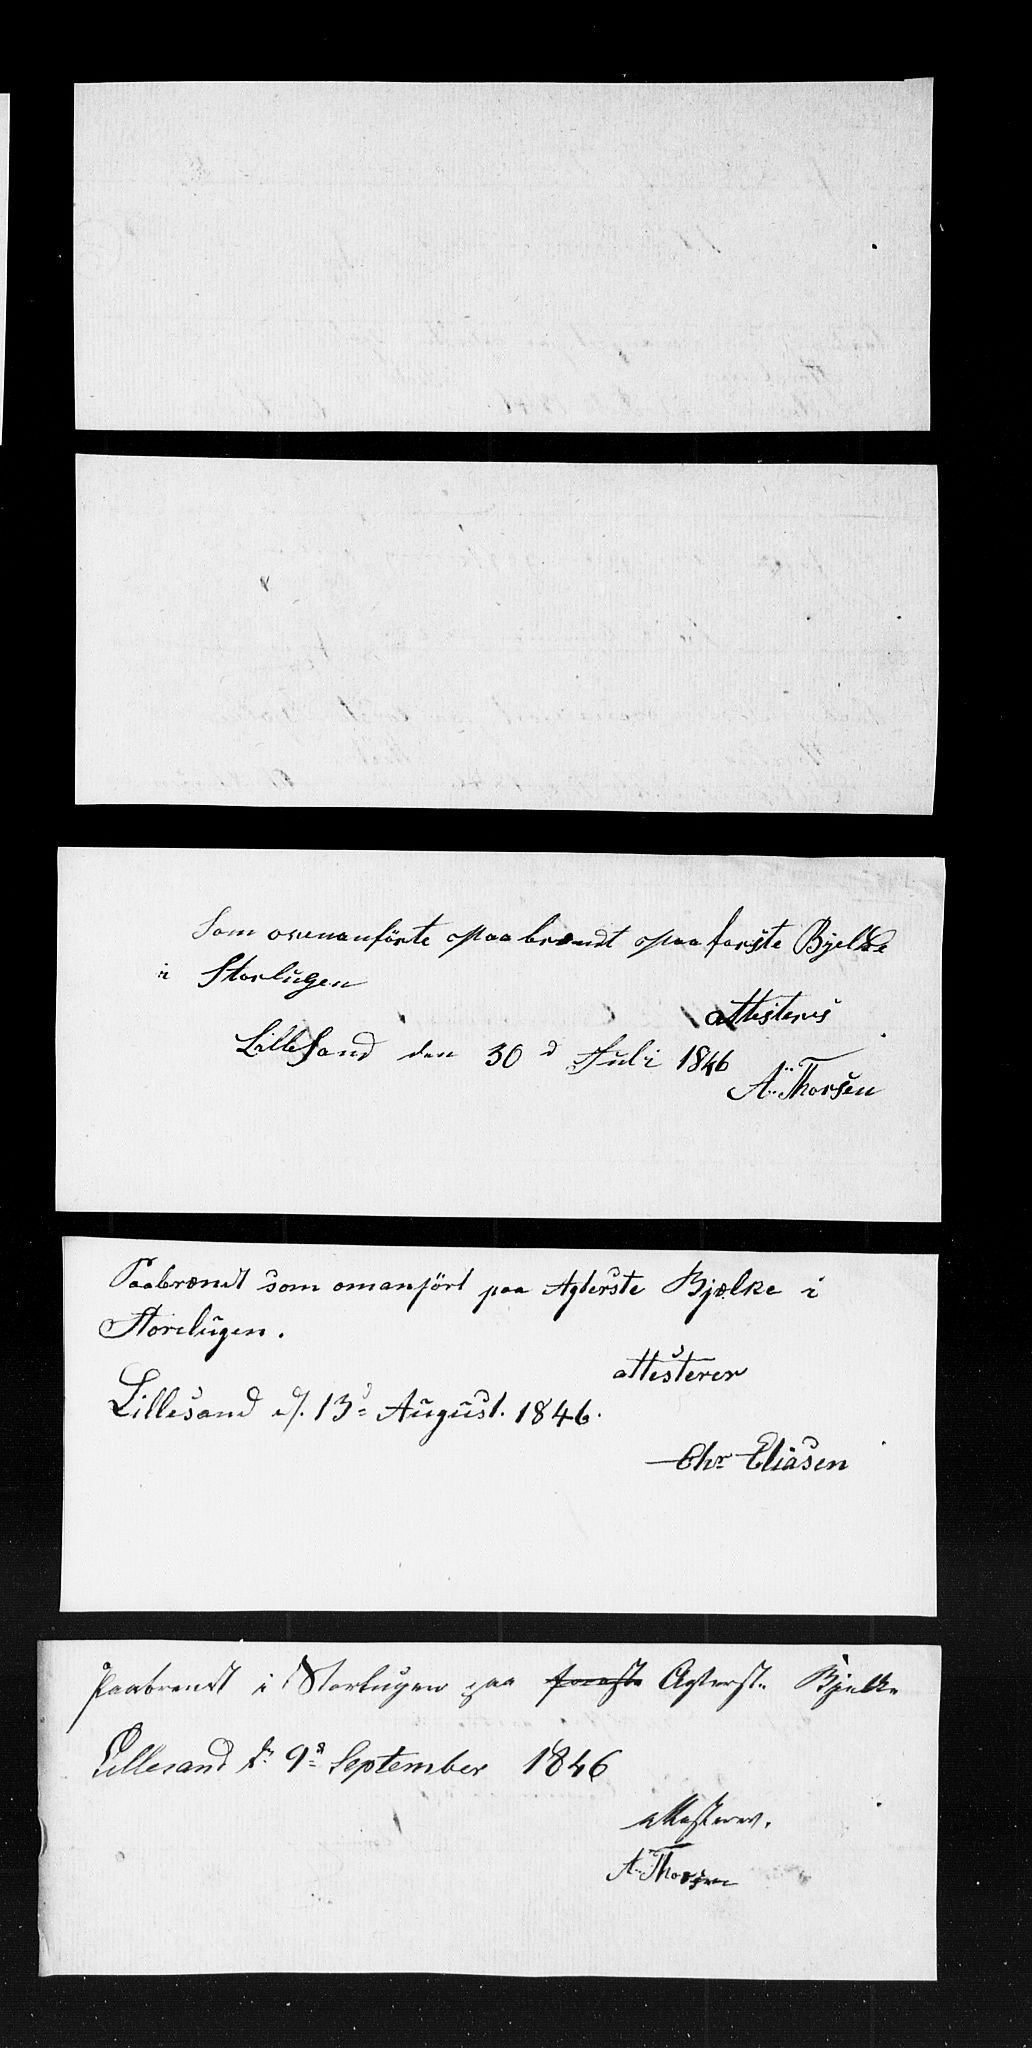 Som ovenanförte paabrændt paa forste Bjelke
i Storlugen
attesteres
Lillesand den 30 d Juli 1846
A. Thorsen
Paabrændt som omanfört paa Agterste Bjælke i
Storelugen.
attesterer
Lillesand d/. 13d August. 1846.
Chr Eliasen
Paabrendt i Storlugen paa forste Agterste Bjelke
Lillesand dn 9d September 1846
attesterer.
A. Thorsen